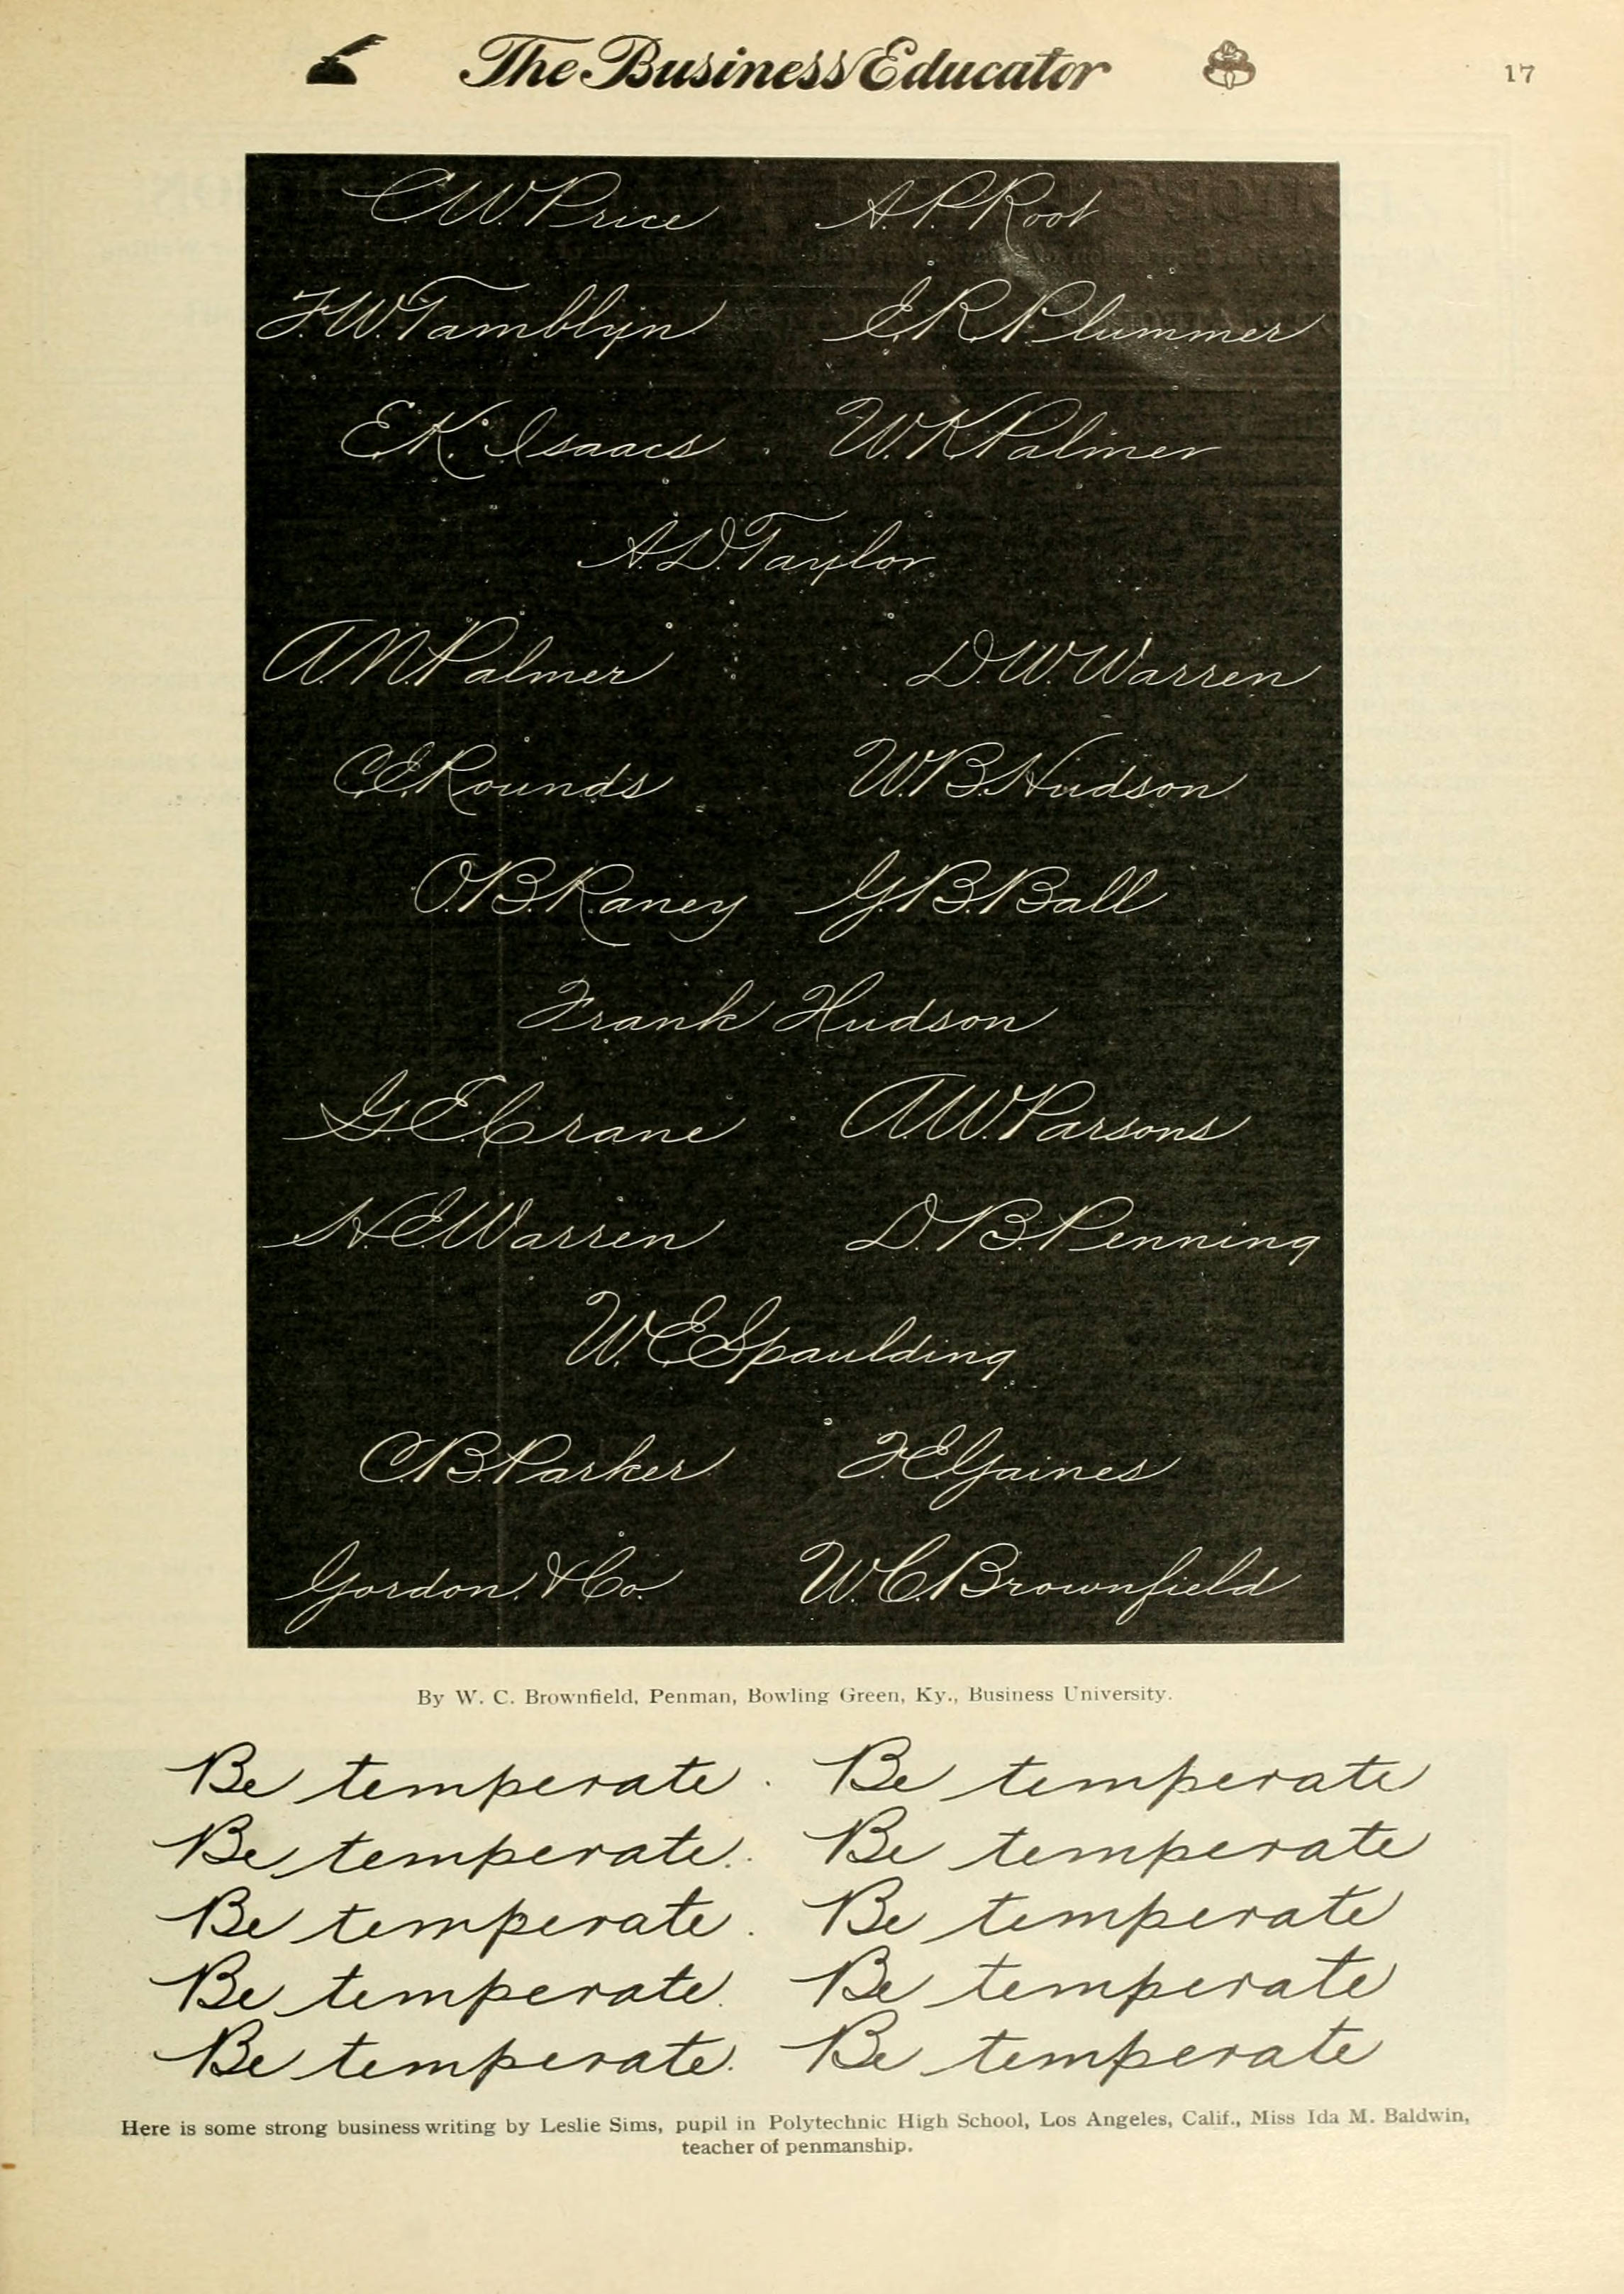 The Business Educator 17
C.W. Price A.P. Root
F.W. Tamblyn E.R. Plummer
E.K. Isaacs W.K. Palmer
A.D. Taylor
A.N. Palmer D.W. Warren
C.E. Rounds W.B. Hudson
O.B. Raney G.B. Ball
Frank Hudson
G.E. Crane A.W. Parsons
H.E. Warren D.B. Penning
W.E. Spaulding
C.B. Parker F.E. Gaines
Gordon & Co. W.C. Brownfield
By W. C. Brownfield, Penman, Bowling Green, Ky., Business University.
Be temperate. Be temperate
Be temperate. Be temperate
Be temperate. Be temperate
Be temperate. Be temperate
Be temperate. Be temperate
Here is some strong business writing by Leslie Sims, pupil in Polytechnic High School, Los Angeles, Calif., Miss Ida M. Baldwin,
teacher of penmanship.